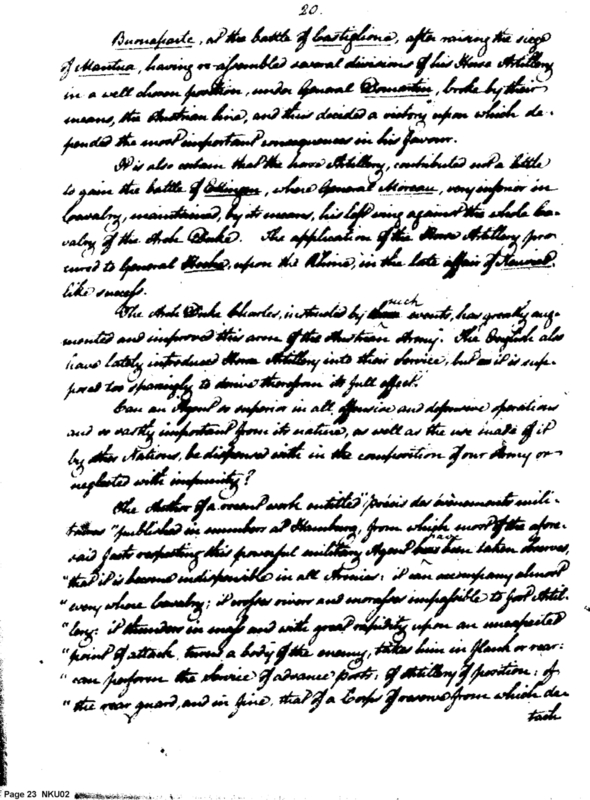 20.
Buonaparte, at the battle of Castiglione, after raising the siege
of Mantua, having re-assembled several divisions of his Horse Artillery
in a well chosen position, under General Domartin, broke by their
means, the Austrian line, and thus decided a victory upon which de-
pended the most important consequences in his favour.
It is also certain that the horse Artillery, contributed not a little
to gain the battle of Ettingen, where General Moreau, very inferior in
Cavalry, maintained, by its means, his left wing against the whole Ca-
valry of the Arch Duke. The application of the Horse Artillery pro-
cured to General Hoche, upon the Rhine, in the late affair of Neuwied,
like success.
The Arch Duke Charles, instructed by such events, has greatly aug-
mented and improved this arm of the Austrian Army. The English also
have lately introduced Horse Artillery into their Service, but as it is sup-
posed too sparingly to derive therefrom its full effect.
Can an Agent so superior in all offensive and defensive operations
and so vastly important from its nature, as well as the use made of it
by other Nations, be dispensed with in the composition of our Army or
neglected with impunity?
The Author of a recent work entitled "précis des évènements mili-
taires" published in numbers at Hamburg, from which most of the afore-
said facts respecting this powerful military Agent have been taken observes,
"that it is become indispensible in all Armies: it can accompany almost
"every where Cavalry; it crosses rivers and morasses impassible to foot Artil-
lery: it thunders in mass and with great rapidity upon an unexpected
"point of attack, turns a body of the enemy, takes him in flank or rear:
"can perform the Service of advance posts; of Artillery of position; of
"the rear guard, and in fine, that of a Corps of reserve from which de-
tach
Page 23 NKU02